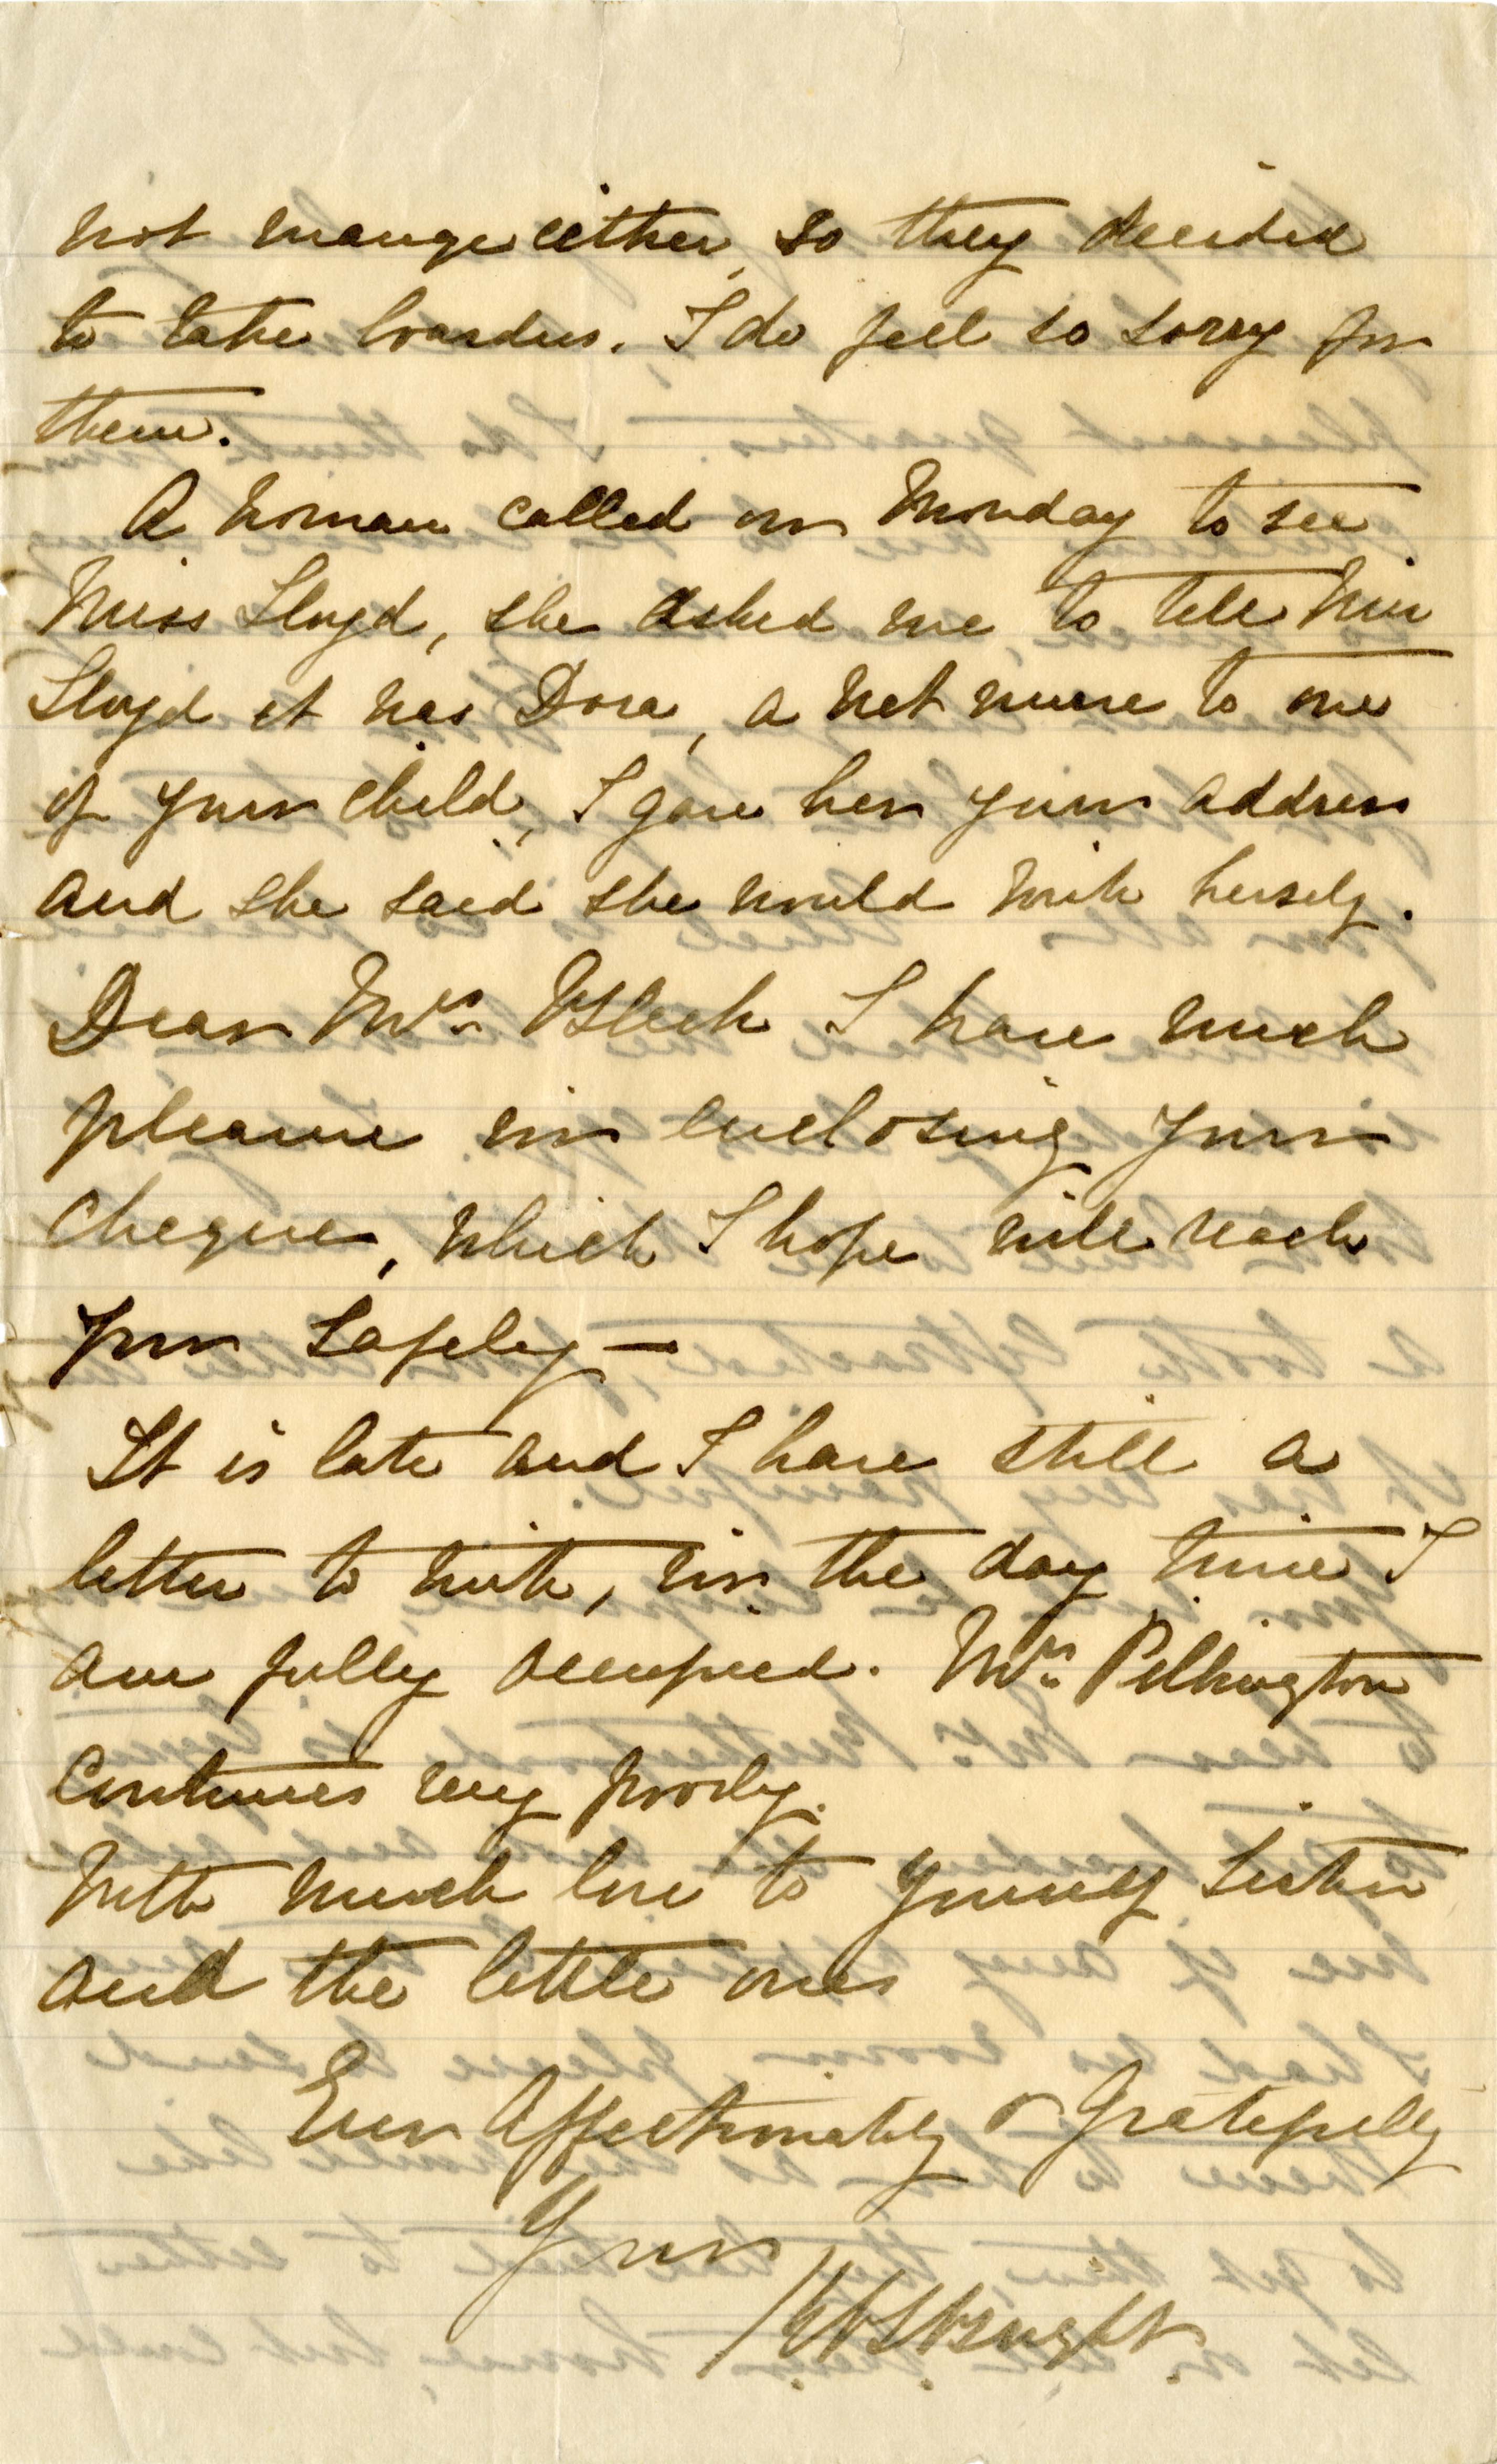 not manage either, so they decided
to take boarders. I do feel so sorry for
them.
A woman called on Monday to see
Miss Lloyd, she asked me to tell Miss
Lloyd it was Dora, a wet nurse to one
of your child, I gave her your address
and she said she would write herself.
Dear Mrs I have much
pleasure in enclosing your
cheque, which I hope will reach
you safely —
It is late and I have still a
letter to write, in the day time I
am fully occupied. Mrs Pilkington
continues very poorly.
With much love to yourself sister
and the little ones
Ever Affectionately & Gratefully
Yours